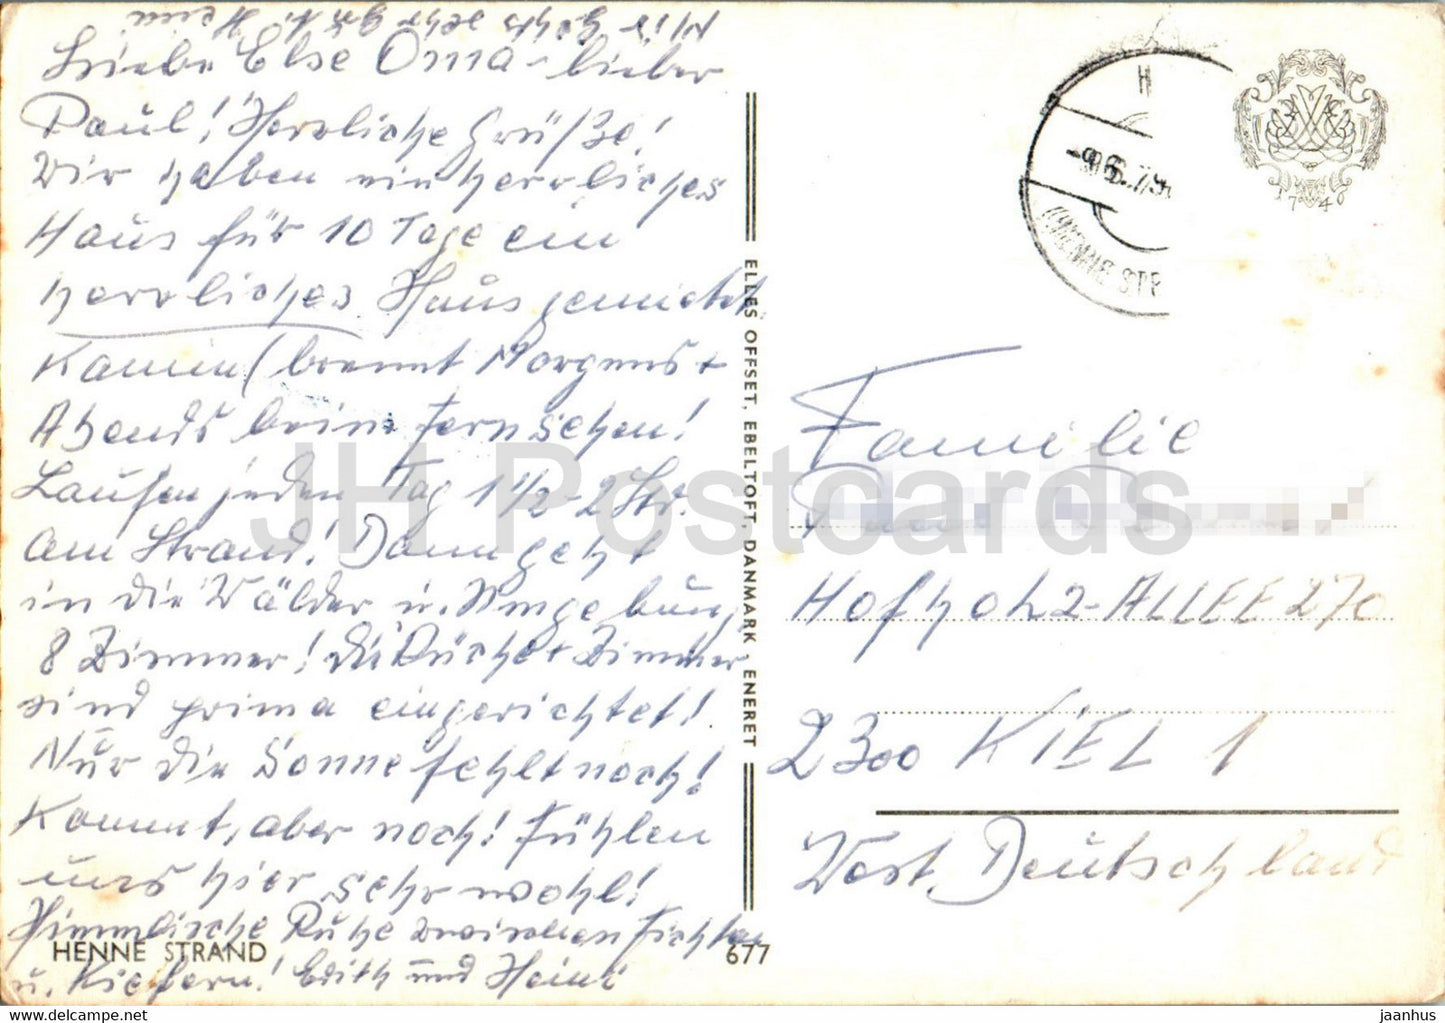 Liebe Else Oma - lieber
Paul! Herrliche Grüße!
Wir haben ein herrliches
Haus für 10 Tage ein
herrliches Haus gemietet.
Kamin (brennt Morgens +
Abends beim Fernsehen!
Laufen jeden Tag 1 1/2 - 2 Std.
am Strand! Dann geht
in die Wälder u. Umgebung
8 Zimmer! Die Küche + Zimmer
sind prima eingerichtet!
Nur die Sonne fehlt noch!
Kommt, aber noch! Fühlen
uns hier sehr wohl!
Himmlische Ruhe zwischen Fichten
u. Kiefern! Edith und Heinz
HENNE STRAND
677
ELLES OFFSET, EBELTOFT, DANMARK, ENERET
HENNE STR
1740
Familie
Hofholz-ALLEE 270
2300 KIEL 1
West Deutschland
JH Postcards
jaanhus ecrater.com